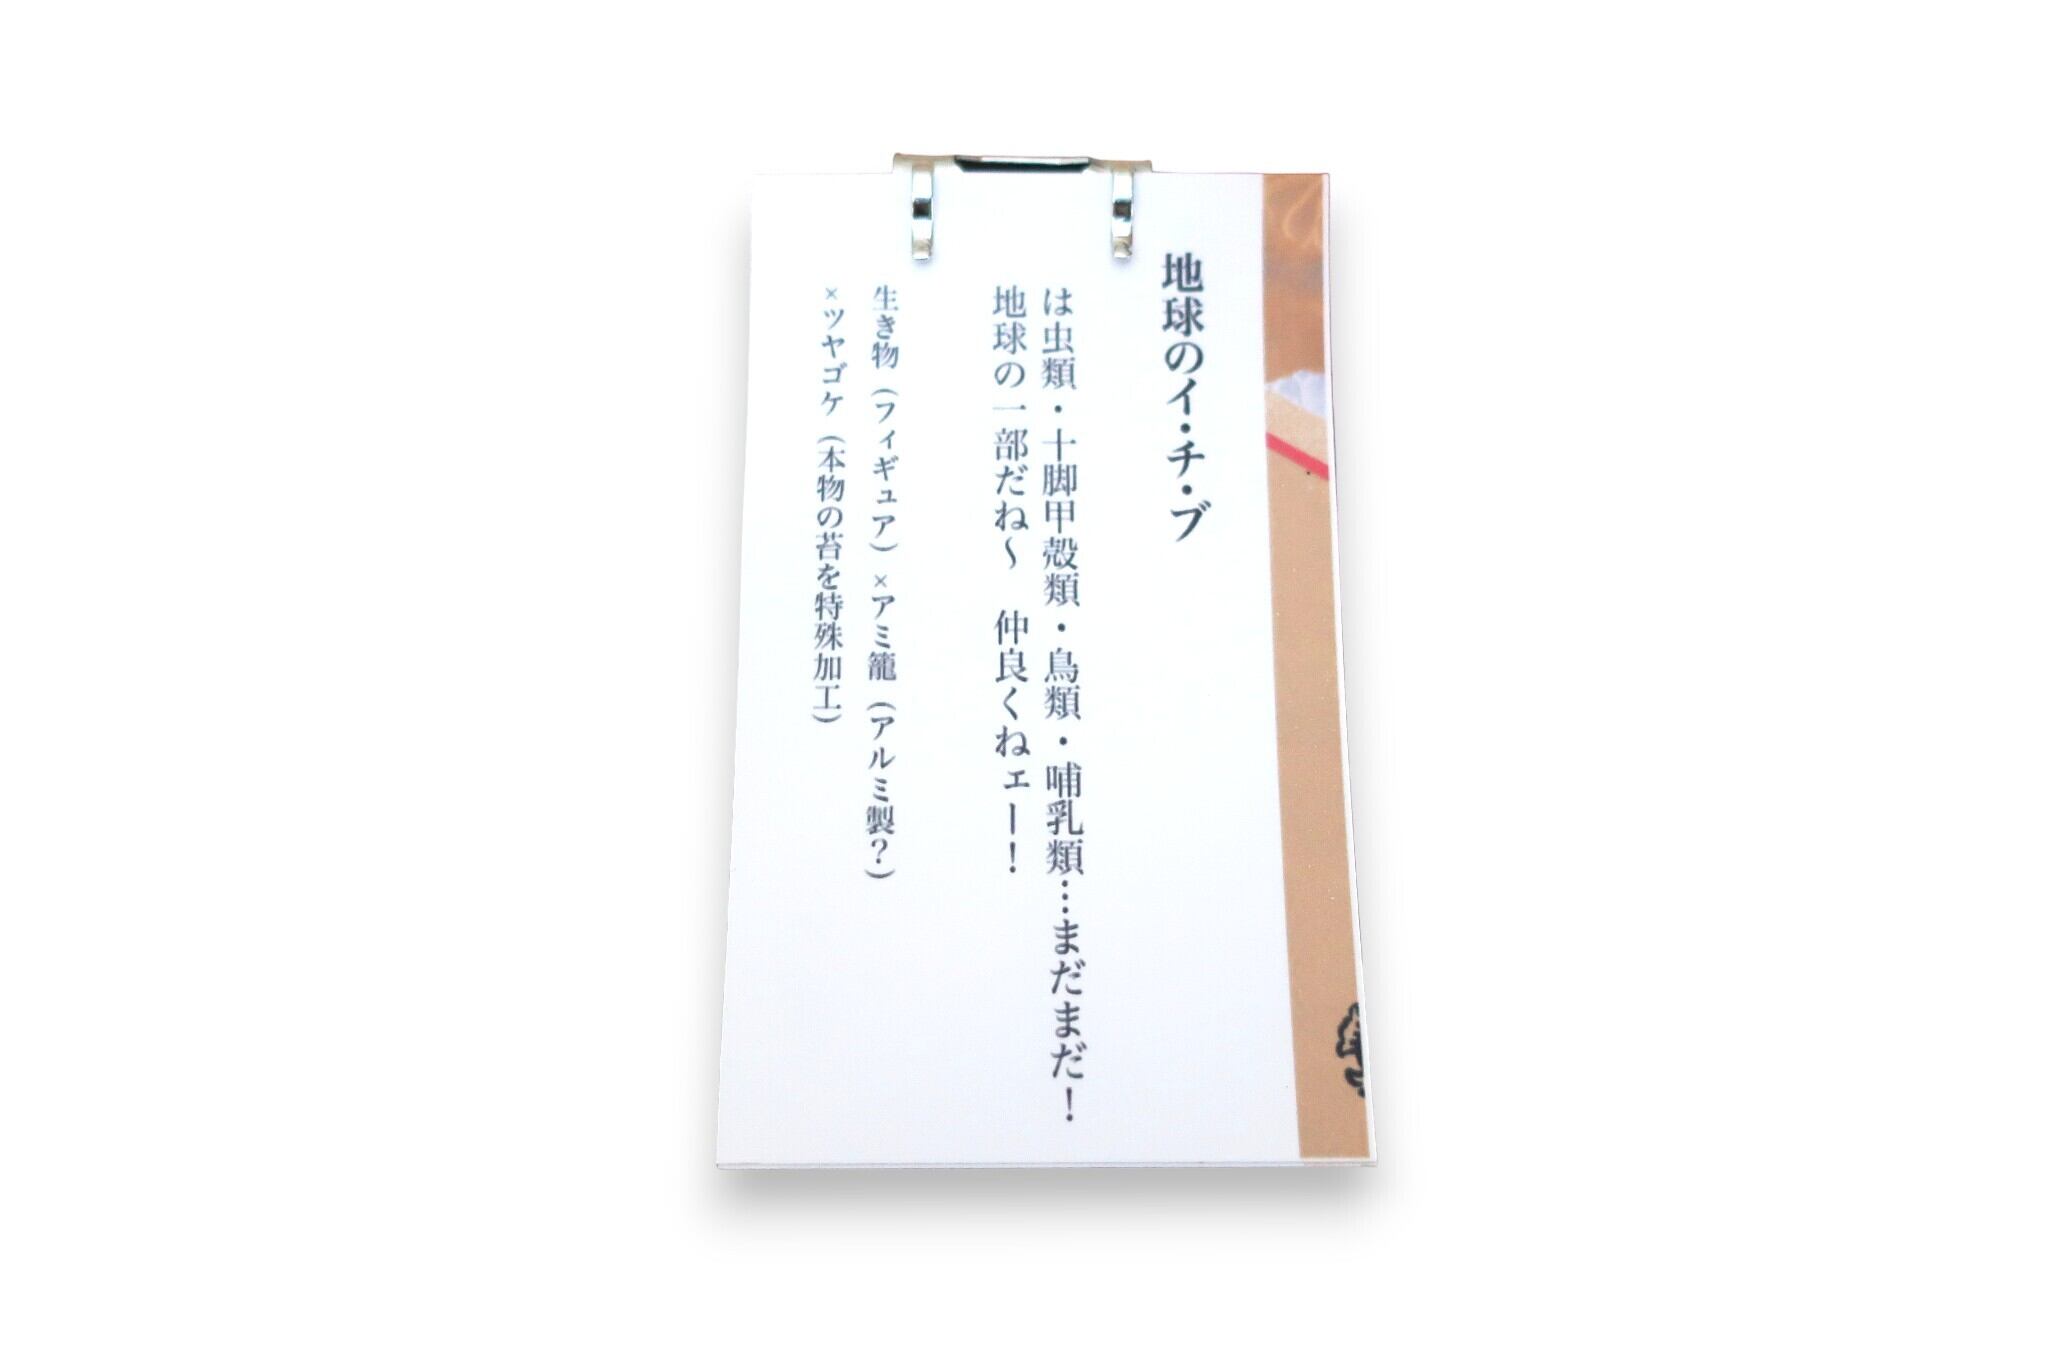 地球のイ・チ・ブ
は虫類・十脚甲殻類・鳥類・哺乳類…まだまだ！
地球の一部だね〜　仲良くねェー！
生き物（フィギュア）×アミ籠（アルミ製？）
×ツヤゴケ（本物の苔を特殊加工）